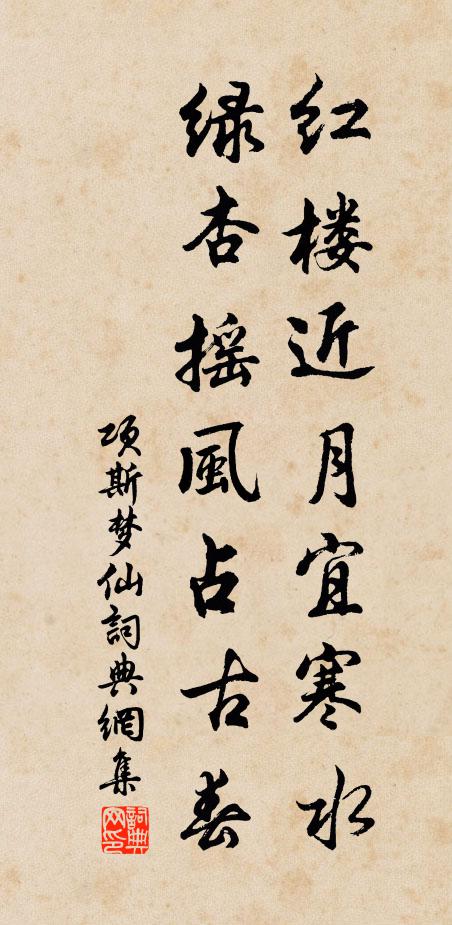 红楼近月宜寒水
绿杏摇風占古春
项斯梦仙詞典網集
詞典网印